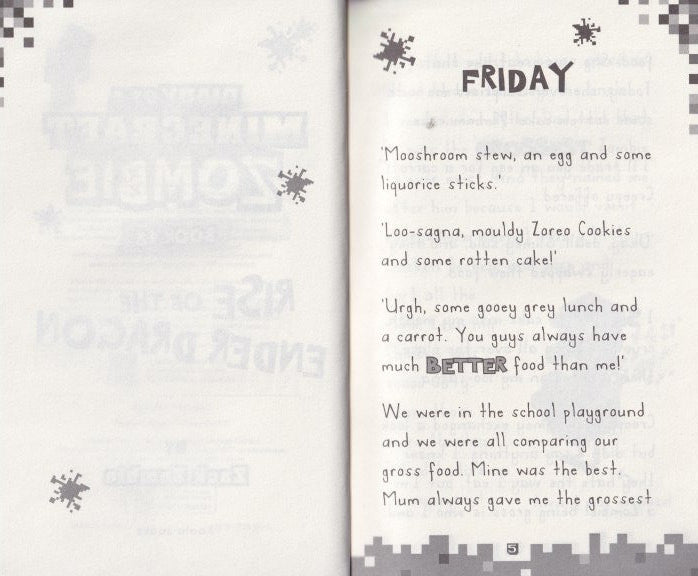 FRIDAY
'Mooshroom stew, an egg and some
liquorice sticks.'
'Loo-sagna, mouldy Zoreo Cookies
and some rotten cake!'
'Urgh, some gooey grey lunch and
a carrot. You guys always have
much BETTER food than me!'
We were in the school playground
and we were all comparing our
gross food. Mine was the best.
Mum always gave me the grossest
5